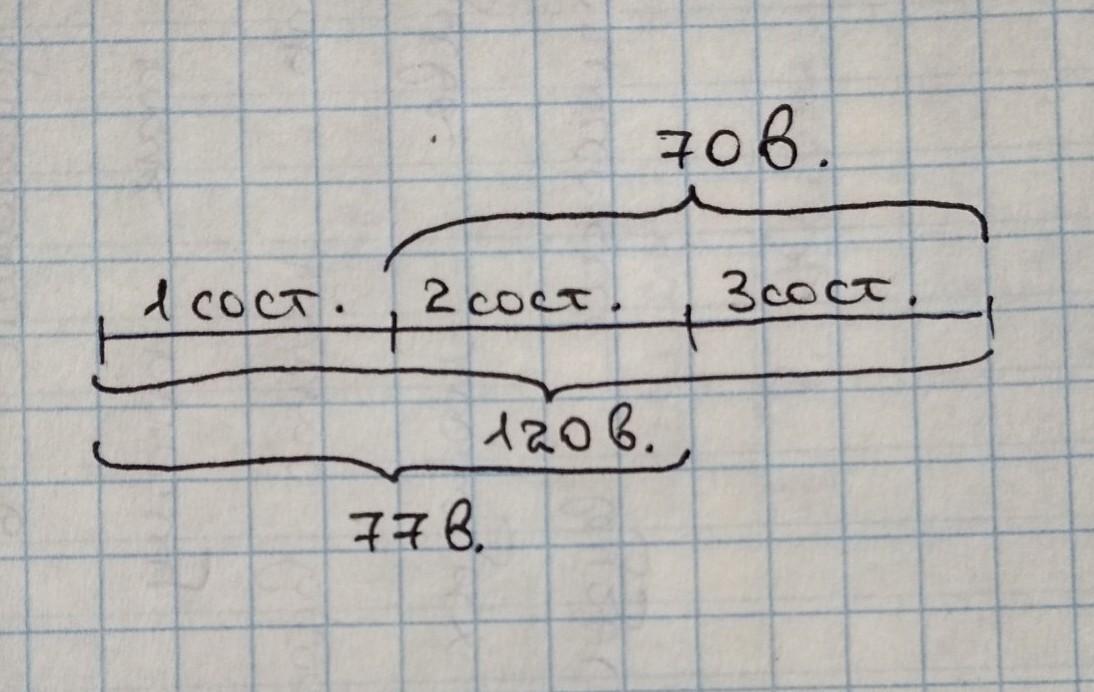 70 в.
1 сост. 2 сост. 3 сост.
120 в.
77 в.